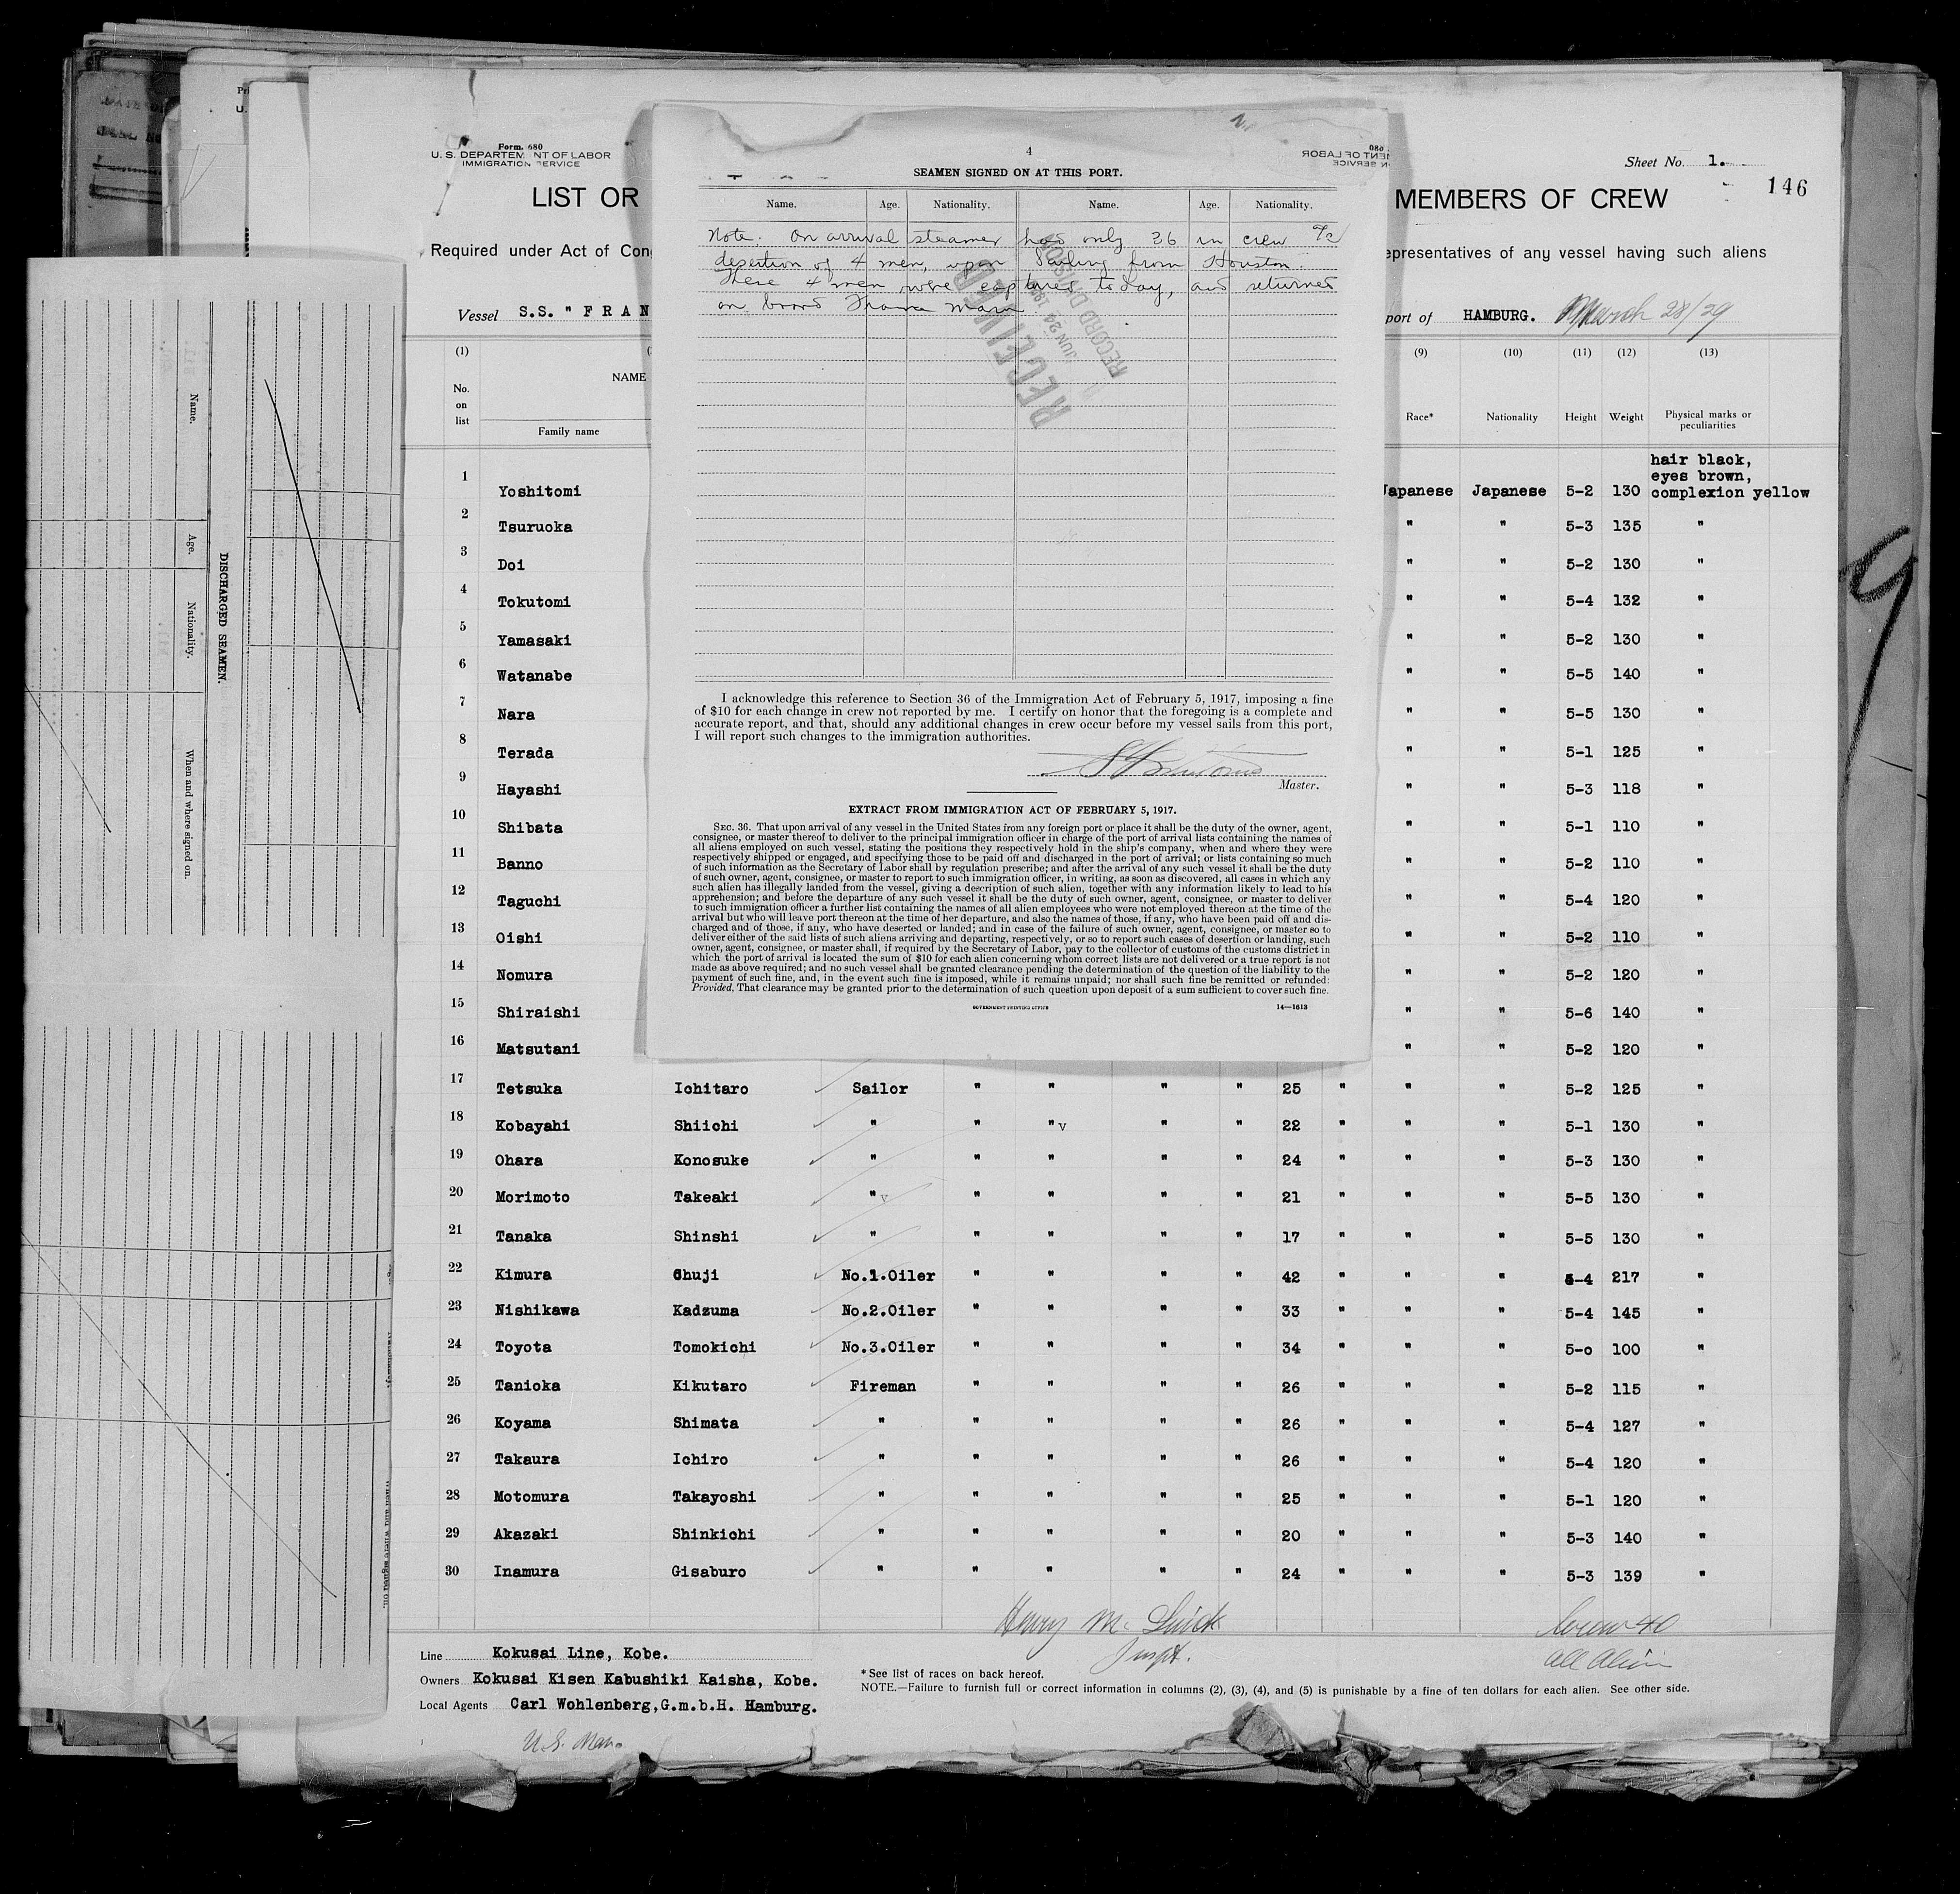 Form. 680
U. S. DEPARTEMENT OF LABOR
IMMIGRATION SERVICE
LIST OR
MEMBERS OF CREW
Sheet No. 1.
146
Required under Act of Cong
epresentatives of any vessel having such aliens
Vessel S.S. " F R A N
port of HAMBURG. March 28/29
4
SEAMEN SIGNED ON AT THIS PORT.
Name. Age. Nationality. Name. Age. Nationality.
Note. On arrival steamer has only 36 in crew
desertion of 4 men, upon Sailing from Houston.
These 4 men were captured today, and returned
on board France Maru
RECEIVED
JUN 24
RECORD DIVISION
I acknowledge this reference to Section 36 of the Immigration Act of February 5, 1917, imposing a fine
of $10 for each change in crew not reported by me. I certify on honor that the foregoing is a complete and
accurate report, and that, should any additional changes in crew occur before my vessel sails from this port,
I will report such changes to the immigration authorities.
Master.
EXTRACT FROM IMMIGRATION ACT OF FEBRUARY 5, 1917.
SEC. 36. That upon arrival of any vessel in the United States from any foreign port or place it shall be the duty of the owner, agent,
consignee, or master thereof to deliver to the principal immigration officer in charge of the port of arrival lists containing the names of
all aliens employed on such vessel, stating the positions they respectively hold in the ship's company, when and where they were
respectively shipped or engaged, and specifying those to be paid off and discharged in the port of arrival; or lists containing so much
of such information as the Secretary of Labor shall by regulation prescribe; and after the arrival of any such vessel it shall be the duty
of such owner, agent, consignee, or master to report to such immigration officer, in writing, as soon as discovered, all cases in which any
such alien has illegally landed from the vessel, giving a description of such alien, together with any information likely to lead to his
apprehension; and before the departure of any such vessel it shall be the duty of such owner, agent, consignee, or master to deliver
to such immigration officer a further list containing the names of all alien employees who were not employed thereon at the time of the
arrival but who will leave port thereon at the time of her departure, and also the names of those, if any, who have been paid off and dis-
charged and of those, if any, who have deserted or landed; and in case of the failure of such owner, agent, consignee, or master so to
deliver either of the said lists of such aliens arriving and departing, respectively, or so to report such cases of desertion or landing, such
owner, agent, consignee, or master shall, if required by the Secretary of Labor, pay to the collector of customs of the customs district in
which the port of arrival is located the sum of $10 for each alien concerning whom correct lists are not delivered or a true report is not
made as above required; and no such vessel shall be granted clearance pending the determination of the question of the liability to the
payment of such fine, and, in the event such fine is imposed, while it remains unpaid; nor shall such fine be remitted or refunded:
Provided, That clearance may be granted prior to the determination of such question upon deposit of a sum sufficient to cover such fine.
GOVERNMENT PRINTING OFFICE 14—1613
DISCHARGED SEAMEN.
Name. Age. Nationality. When and where signed on.
(1) (9) (10) (11) (12) (13)
No. on list
NAME
Family name
Race* Nationality Height Weight Physical marks or peculiarities
hair black,
eyes brown,
1 Yoshitomi Japanese Japanese 5-2 130 complexion yellow
2 Tsuruoka " " 5-3 135 "
3 Doi " " 5-2 130 "
4 Tokutomi " " 5-4 132 "
5 Yamasaki " " 5-2 130 "
6 Watanabe " " 5-5 140 "
7 Nara " " 5-5 130 "
8 Terada " " 5-1 125 "
9 Hayashi " " 5-3 118 "
10 Shibata " " 5-1 110 "
11 Banno " " 5-2 110 "
12 Taguchi " " 5-4 120 "
13 Oishi " " 5-2 110 "
14 Nomura " " 5-2 120 "
15 Shiraishi " " 5-6 140 "
16 Matsutani " " 5-2 120 "
17 Tetsuka Ichitaro Sailor " " " " 25 " " " 5-2 125 "
18 Kobayahi Shiichi " " " v " " 22 " " " 5-1 130 "
19 Ohara Konosuke " " " " " 24 " " " 5-3 130 "
20 Morimoto Takeaki " v " " " " 21 " " " 5-5 130 "
21 Tanaka Shinshi " " " " " 17 " " " 5-5 130 "
22 Kimura Chuji No.1.Oiler " " " " 42 " " " 5-4 217 "
23 Nishikawa Kadzuma No.2.Oiler " " " " 33 " " " 5-4 145 "
24 Toyota Tomokichi No.3.Oiler " " " " 34 " " " 5-o 100 "
25 Tanioka Kikutaro Fireman " " " " 26 " " " 5-2 115 "
26 Koyama Shimata " " " " " 26 " " " 5-4 127 "
27 Takaura Ichiro " " " " " 26 " " " 5-4 120 "
28 Motomura Takayoshi " " " " " 25 " " " 5-1 120 "
29 Akazaki Shinkichi " " " " " 20 " " " 5-3 140 "
30 Inamura Gisaburo " " " " " 24 " " " 5-3 139 "
Henry Mc
Inspt.
Crew 40
all Alien
Line Kokusai Line, Kobe.
Owners Kokusai Kisen Kabushiki Kaisha, Kobe.
Local Agents Carl Wohlenberg,G.m.b.H. Hamburg.
*See list of races on back hereof.
NOTE.—Failure to furnish full or correct information in columns (2), (3), (4), and (5) is punishable by a fine of ten dollars for each alien. See other side.
9